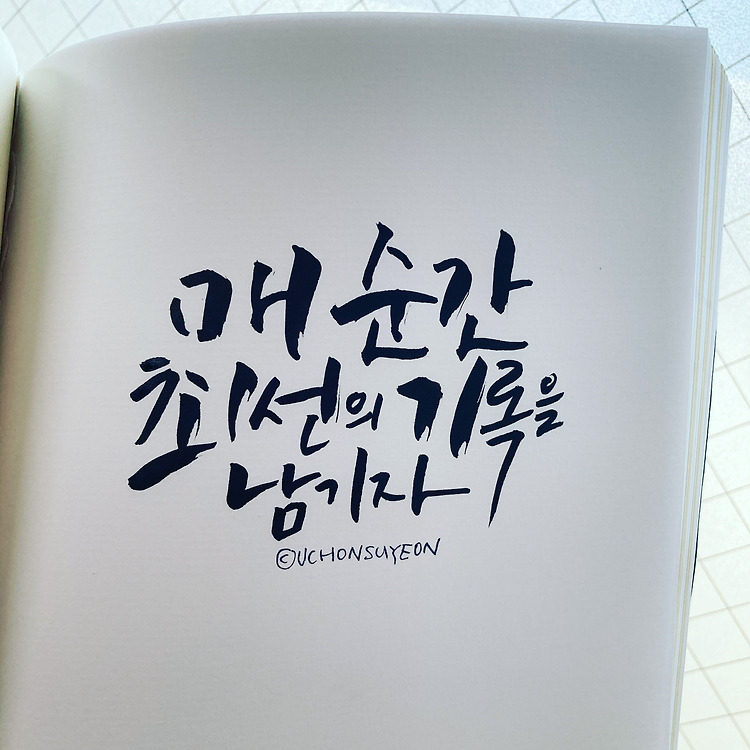 매 순간
최선의 기록을
남기자
©UCHONSUYEON